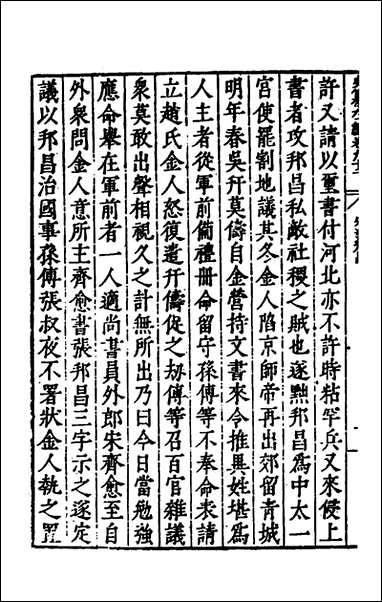 許又請以璽書付河北亦不許時粘罕兵又來侵上
書者攻邦昌私敵社稷之賊也遂黜邦昌爲中太一
宮使罷割地議其冬金人陷京師帝再出郊留青城
明年春吳幵莫儔自金營持文書來令推異姓堪爲
人主者從軍前備禮册命留守孫傅等不奉命表請
立趙氏金人怒復遣幵儔促之劫傅等召百官雜議
衆莫敢出聲相視久之計無所出乃曰今日當勉強
應命舉在軍前者一人適尚書員外郎宋齊愈至自
外衆問金人意所主齊愈書張邦昌三字示之遂定
議以邦昌治國事孫傅張叔夜不署狀金人執之置